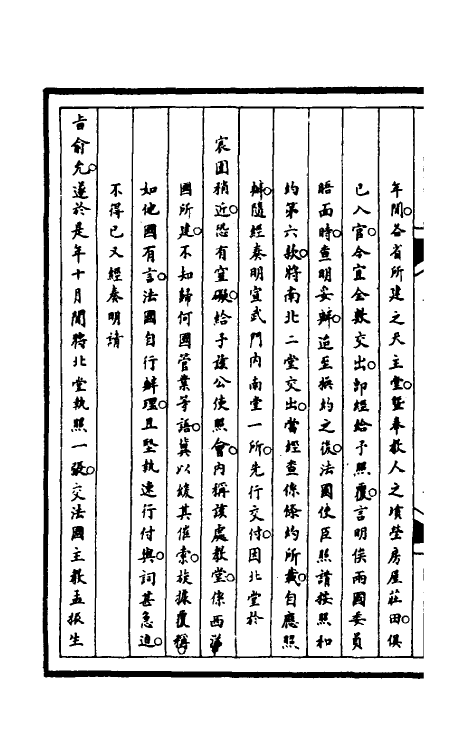 年間各省所建之天主堂暨奉教人之墳塋房屋莊田俱
已入官今宜全數交出即經給予照覆言明俟兩國委員
晤面時查明妥辦迨至換約之後法國使臣照請按照和
約第六款將南北二堂交出當經查係條約所載自應照
辦隨經奏明宣武門內南堂一所先行交付因北堂於
宸園稍近恐有窒礙給予該公使照會內稱該處教堂係西洋
國所建不知歸何國管業等語冀以緩其催索旋據覆稱
如他國有言法國自行辦理且堅執速行付與詞甚急迫
不得已又經奏明請
旨俞允遂於是年十月間將北堂執照一張交法國主教孟振生